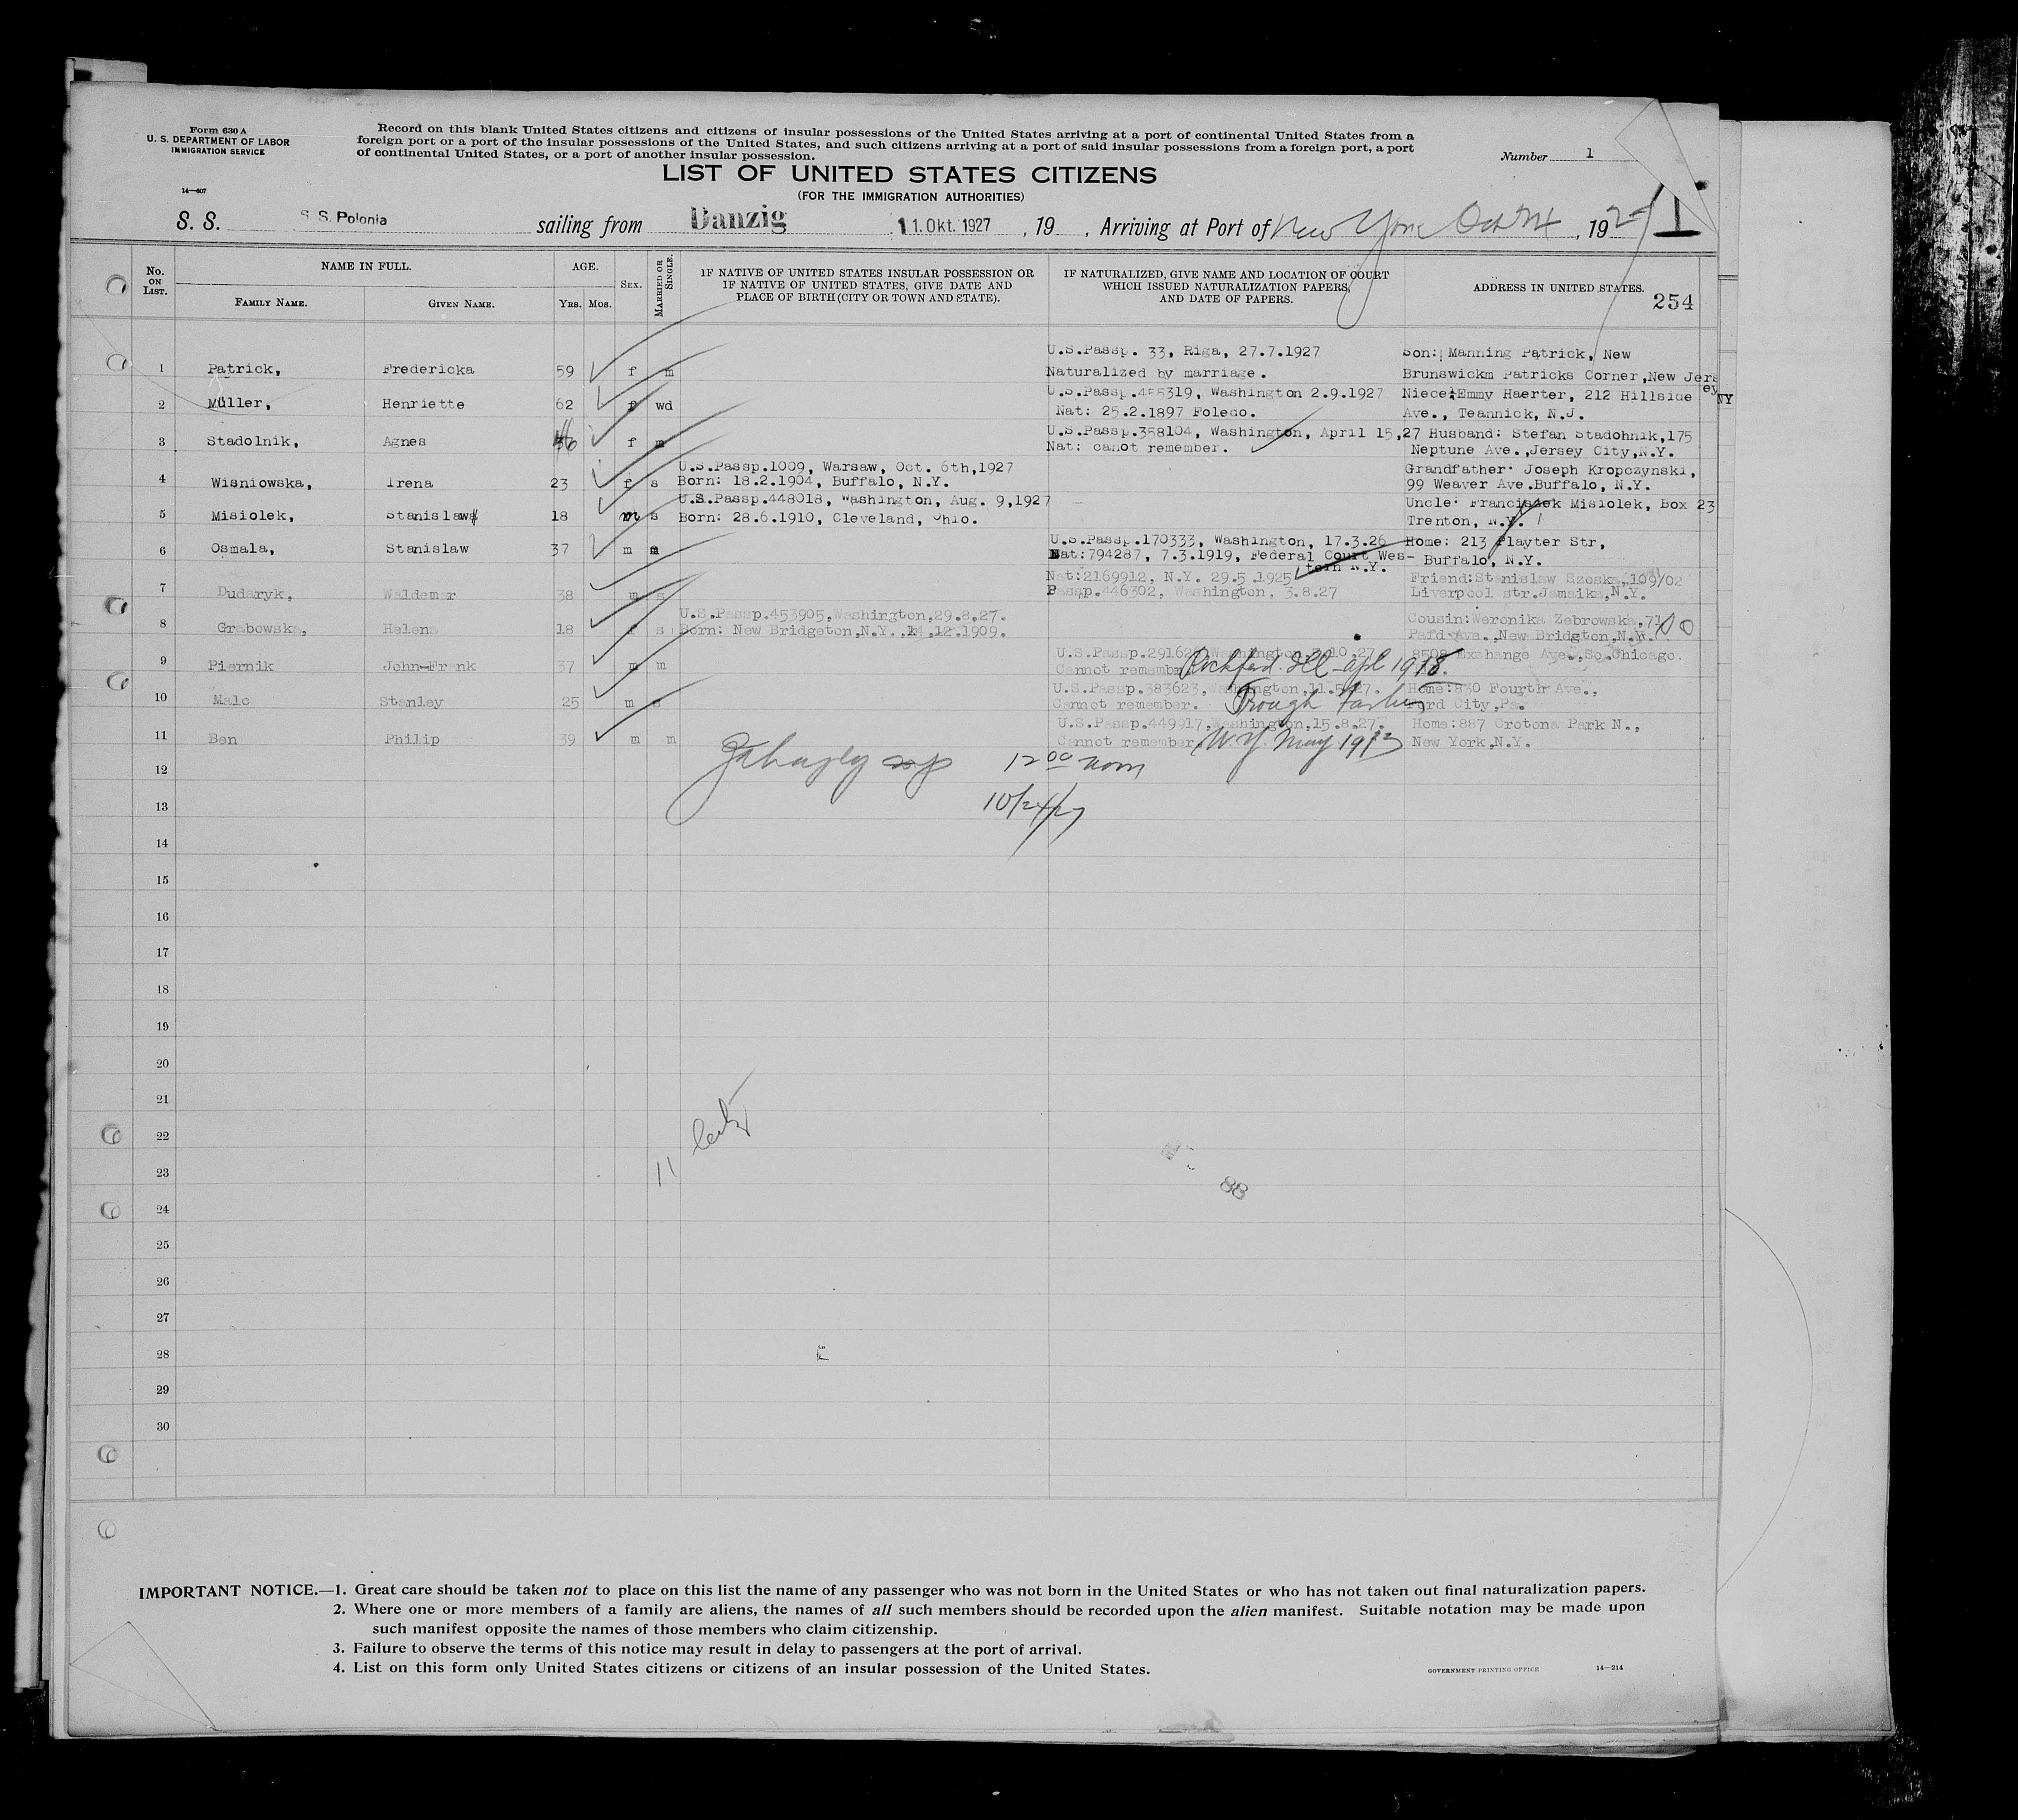 Form 630 A
U. S. DEPARTMENT OF LABOR
IMMIGRATION SERVICE
14—607
Record on this blank United States citizens and citizens of insular possessions of the United States arriving at a port of continental United States from a
foreign port or a port of the insular possessions of the United States, and such citizens arriving at a port of said insular possessions from a foreign port, a port
of continental United States, or a port of another insular possession.
Number 1
LIST OF UNITED STATES CITIZENS
(FOR THE IMMIGRATION AUTHORITIES)
S. S. S. S. Polonia sailing from Danzig 11. Okt. 1927, 19 , Arriving at Port of New York Oct 24, 1927 1
No. ON LIST.
NAME IN FULL.
FAMILY NAME.
GIVEN NAME.
AGE.
YRS. MOS.
SEX.
MARRIED OR SINGLE.
IF NATIVE OF UNITED STATES INSULAR POSSESSION OR
IF NATIVE OF UNITED STATES, GIVE DATE AND
PLACE OF BIRTH (CITY OR TOWN AND STATE).
IF NATURALIZED, GIVE NAME AND LOCATION OF COURT
WHICH ISSUED NATURALIZATION PAPERS,
AND DATE OF PAPERS.
ADDRESS IN UNITED STATES.
254
U.S.Passp. 33, Riga, 27.7.1927 Son: Manning Patrick, New
1 Patrick, Fredericka 59 f m Naturalized by marriage. Brunswickm Patricks Corner,New Jersey
U.S.Passp.455319, Washington 2.9.1927 Niece:Emmy Haerter, 212 Hillside
2 Müller, Henriette 62 f wd Nat: 25.2.1897 Foledo. Ave., Teannick, N.J.
NY
U.S.Passp.358104, Washington, April 15,27 Husband: Stefan Stadohnik,175
3 Stadolnik, Agnes 46 f m Nat: canot remember. Neptune Ave.,Jersey City,N.Y.
U.S.Passp.1009, Warsaw, Oct. 6th,1927 Grandfather: Joseph Kropczynski,
4 Wisniowska, Irena 23 f s Born: 18.2.1904, Buffalo, N.Y. 99 Weaver Ave.Buffalo, N.Y.
U.S.Passp.448018, Washington, Aug. 9,1927 Uncle: Franciszek Misiolek, Box 23
5 Misiolek, Stanislaw 18 m s Born: 28.6.1910, Cleveland, Ohio. Trenton, N.Y.
U.S.Passp.170333, Washington, 17.3.26 Home: 213 Playter Str,
6 Osmala, Stanislaw 37 m Nat:794287, 7.3.1919, Federal Court Wes- Buffalo, N.Y.
tern N.Y.
Nat:2169912, N.Y. 29.5.1925 Friend:Stanislaw Szoska,109/02
7 Dudaryk, Waldemar 38 m s Passp.446302, Washington, 3.8.27 Liverpool str.Jamaika,N.Y.
U.S.Passp.453905,Washington,29.8.27. Cousin:Weronika Zebrowska,71
8 Grabowska, Helena 18 f s Born: New Bridgeton,N.Y.,14.12.1909. Ave.,New Bridgton,N.Y.
U.S.Passp.29162 Washington, 10.27 8508 Exchange Ave.,So.Chicago.
9 Piernik John-Frank 37 m m Cannot remember Rockford. Ill - apl 1918.
U.S.Passp.383623,Washington,11.5.27. Home:830 Fourth Ave.,
10 Malc Stanley 25 m s Cannot remember. Trough Father Ford City,Pa.
U.S.Passp.449917,Washington,15.8.27. Home:887 Crotona Park N.,
11 Ben Philip 39 m m Cannot remember N.Y. May 1912 New York,N.Y.
12 12 00 noon
13 10/24/27
14
15
16
17
18
19
20
21
22
23 11
24 88
25
26
27
28
29
30
IMPORTANT NOTICE.—1. Great care should be taken not to place on this list the name of any passenger who was not born in the United States or who has not taken out final naturalization papers.
2. Where one or more members of a family are aliens, the names of all such members should be recorded upon the alien manifest. Suitable notation may be made upon
such manifest opposite the names of those members who claim citizenship.
3. Failure to observe the terms of this notice may result in delay to passengers at the port of arrival.
4. List on this form only United States citizens or citizens of an insular possession of the United States.
GOVERNMENT PRINTING OFFICE 14—214